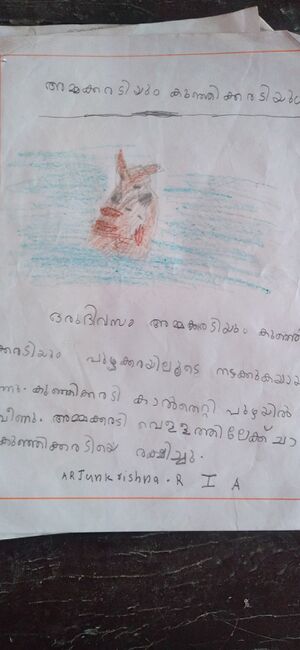 അമ്മക്കരടിയും കുഞ്ഞിക്കരടിയും
ഒരുദിവസം അമ്മക്കരടിയും കുഞ്ഞി
ക്കരടിയും പുഴക്കരയിലൂടെ നടക്കുകയായി
ന്നു. കുഞ്ഞിക്കരടി കാൽതെറ്റി പുഴയിൽ
വീണു. അമ്മക്കരടി വെള്ളത്തിലേക്ക് ചാ
കുഞ്ഞിക്കരടിയെ രക്ഷിച്ചു.
ARJunkrishna. R I A